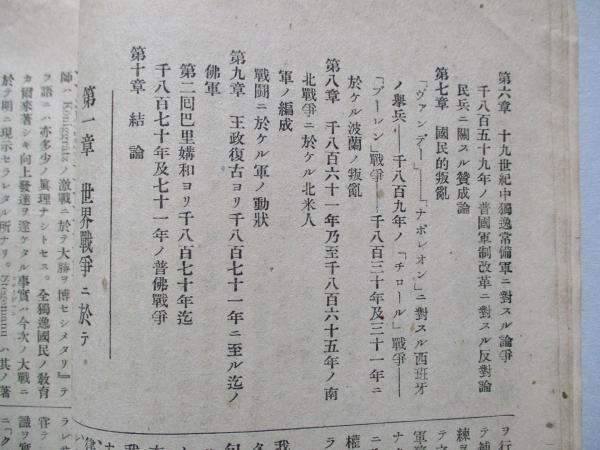 第六章 十九世紀中獨逸常備軍ニ對スル論爭
千八百五十九年ノ普國軍制改革ニ對スル反對論
民兵ニ關スル贊成論
第七章 國民的叛亂
「ヴァンデー」――「ナポレオン」ニ對スル西班牙
ノ擧兵――千八百九年ノ「チロール」戰爭――
「プーレン」戰爭――千八百三十年及三十一年ニ
於ケル波蘭ノ叛亂
第八章 千八百六十一年乃至千八百六十五年ノ南
北戰爭ニ於ケル北米人
軍ノ編成
戰鬪ニ於ケル軍ノ動狀
第九章 王政復古ヨリ千八百七十一年ニ至ル迄ノ
佛軍
第二囘巴里媾和ヨリ千八百七十年迄
千八百七十年及七十一年ノ普佛戰爭
第十章 結論
第一章 世界戰爭ニ於テ
師ハ Königgrätz ノ激戰ニ於テ大勝ヲ博セシメタリ』テ
ヲ語ニハ亦多少ノ眞理ナシトセス。全獨逸國民ノ敎育
カ爾來著シキ向上發達ヲ遂ケタル事實ハ今次ノ大戰ニ
於テ明ニ現示セラレタル所ナリ。Stegemann ハ其ノ著